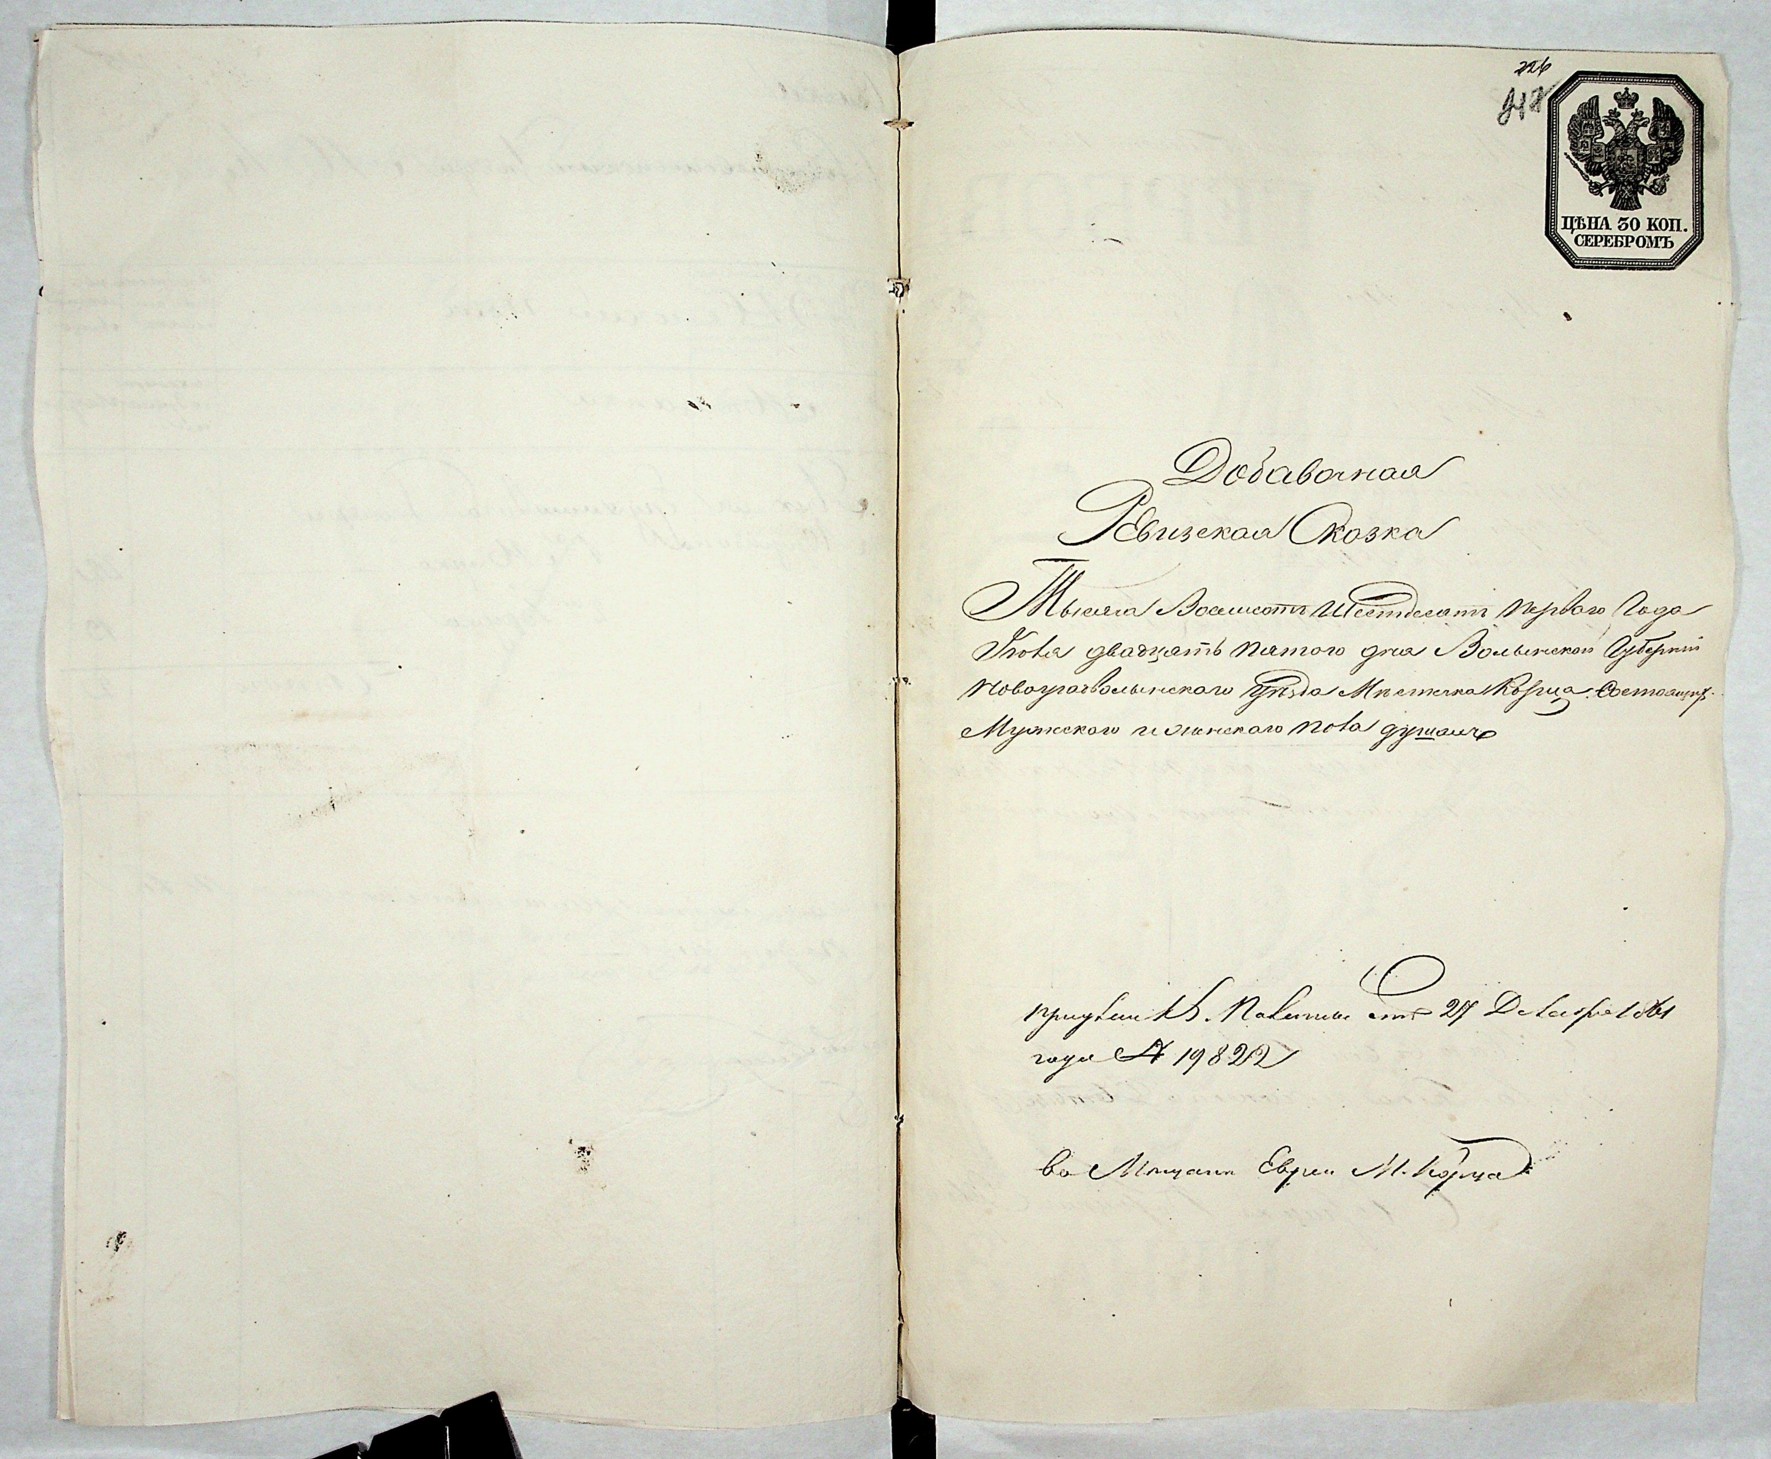 226
ЦѢНА 30 КОП.
СЕРЕБРОМЪ
Добавочная
Ревизская Сказка
Тысяча Восемсотъ Шестдесятъ первого Года
двадцать пятого дня Волынской Губерніи
Новоградволынского Уѣзда Мѣстечка Корца Состоящихъ
Мужеского и женского пола душахъ
27 Декабря 1861
года № 19822
Мѣщане Евреи М. Корца